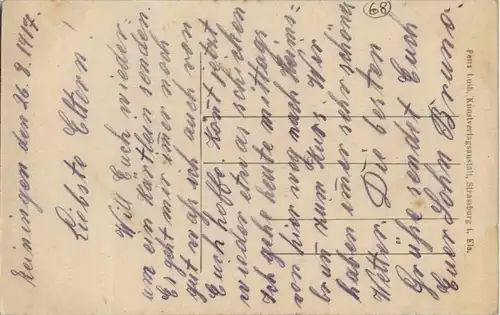 Reiningen den 26.8.1917.
Liebste Eltern!
Will Euch wieder
um ein Kärtlein senden.
Es geht mir immer noch
gut was ich auch von
Euch hoffe. Könt jetzt
wieder etwas schicken
Ich gehe heute mittags
von hier weg nach Heims-
brun zum Kurs. Wir
haben imer sehr schönes
Vetter. Die besten
Grüße sendet Euch
Euer Sohn Bruno
68
Petrs Luib, Kunstverlagsanstalt, Strassburg i. Els.